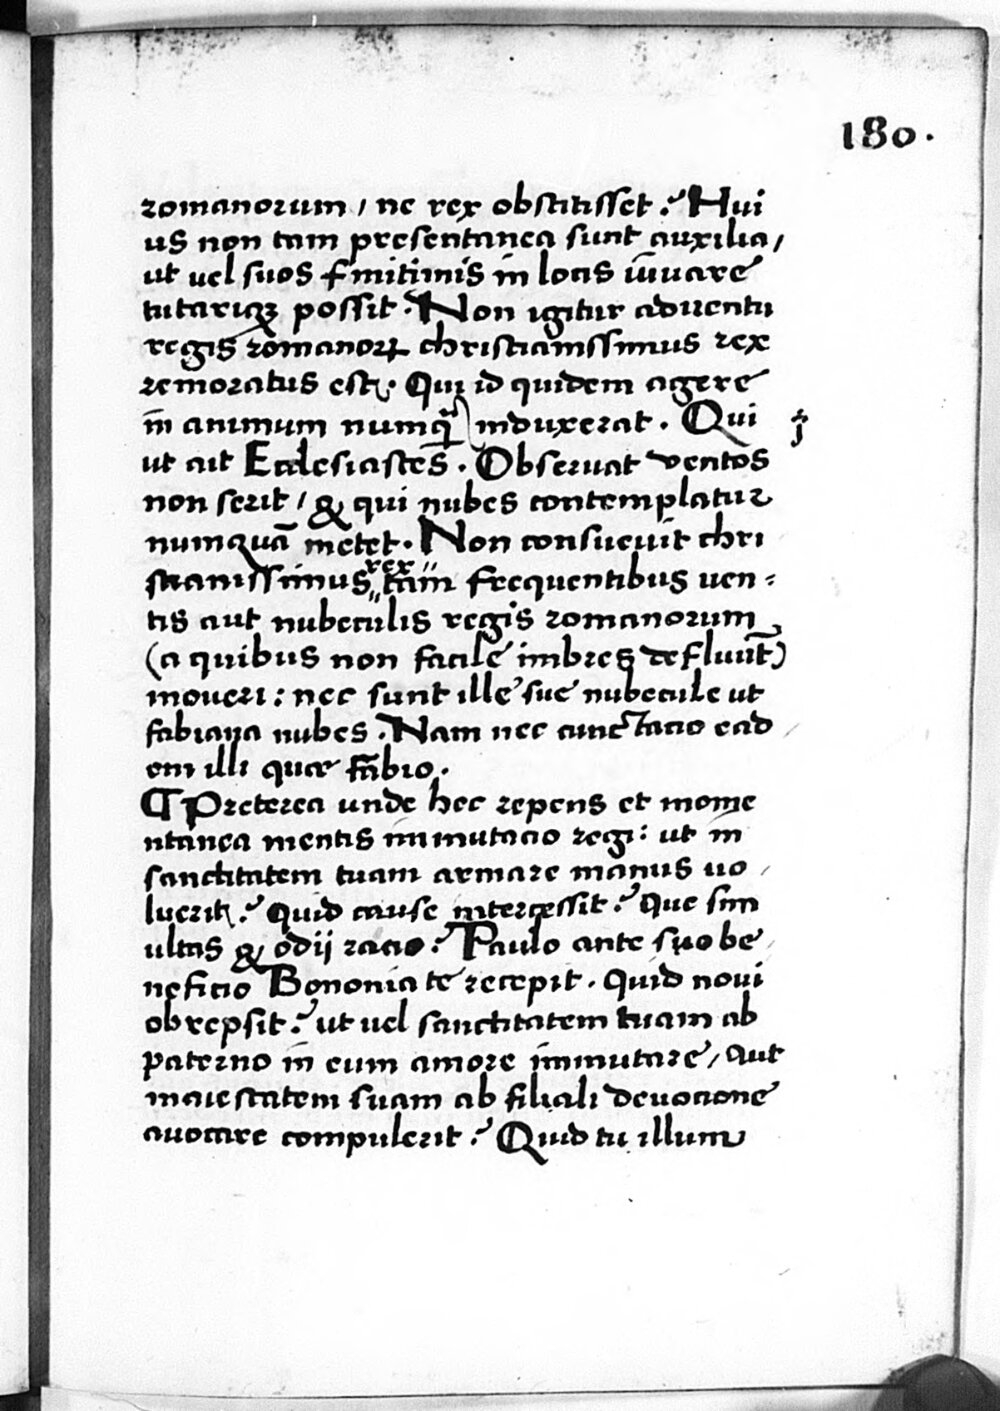 180.
romanorum / ne rex obstitisset? Hui
us non tam presentanea sunt auxilia /
ut vel suos finitimis in locis iuvare
tutariqꝫ possit. Non igitur adventu
regis romanorꝝ christianissimus rex
remoratus est. Qui id quidem agere
in animum numq̄ induxerat. Qui
ut ait Ecclesiastes. Observat ventos
non serit / & qui nubes contemplatur
numquā metet. Non consuevit chri
stianissimus rex tam frequentibus ven=
tis aut nubeculis regis romanorum
(a quibus non facile imbres defluūt)
moveri: nec sunt ille sue nubecule ut
fabiana nubes. Nam nec cunctacio ead
em illi quæ fabio.
¶ Preterea unde hec repens et mome
ntanea mentis immutacio regi: ut in
sanctitatem tuam armare manus vo
luerit? Quid cause intercessit? Que sim
ultas & odij racio? Paulo ante suo be
neficio Bononia te recepit. Quid novi
obrepsit? ut vel sanctitatem tuam ab
paterno in eum amore immutare / aut
maiestatem suam ab filiali devocione
avocare compulerit? Quid tu illum